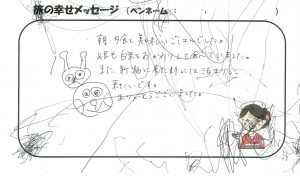 旅の幸せメッセージ(ペンネーム　　　)
朝・夕食と美味しいごはんでした。
娘も白米をおかわりして食べていました。
また新潟に来た時には泊まりに
来たいです。
ありがとうございました。